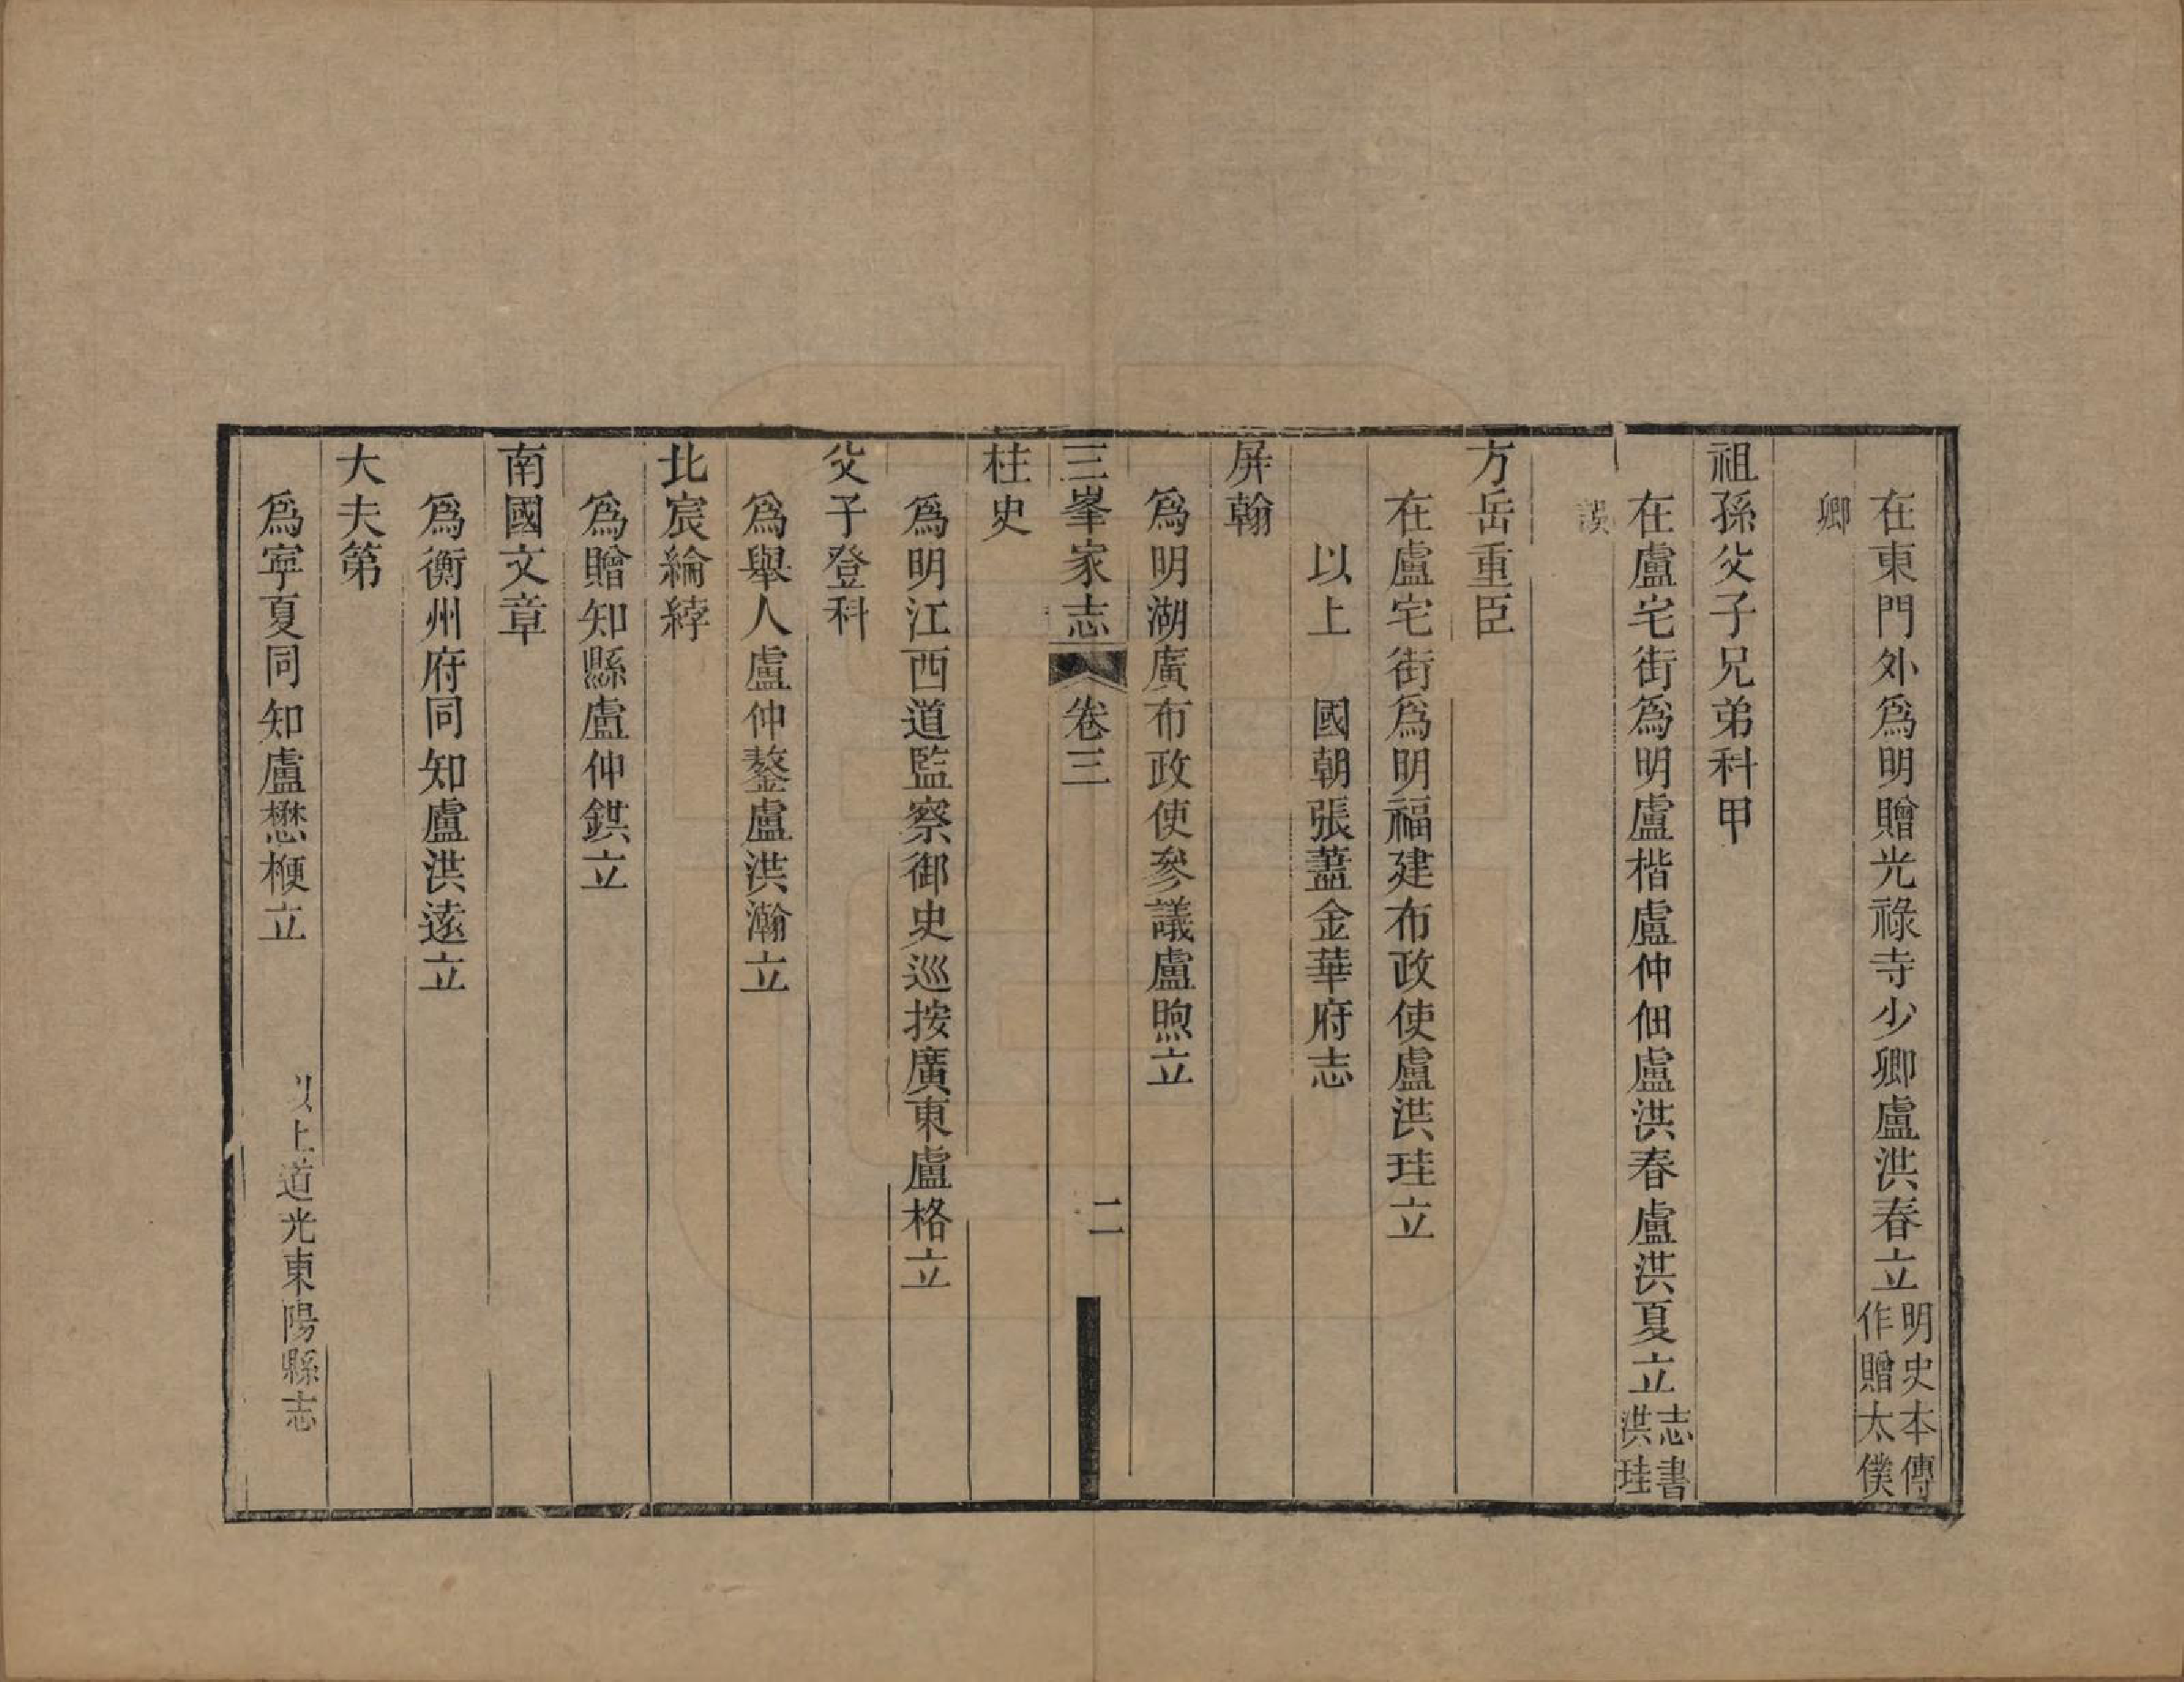 在東門外爲明贈光祿寺少卿盧洪春立明史本傳作贈太僕
卿
祖孫父子兄弟科甲
在盧宅街爲明盧楷盧仲佃盧洪春盧洪夏立志書洪珪
誤
方岳重臣
在盧宅街爲明福建布政使盧洪珪立
以上　國朝張藎金華府志
屏翰
爲明湖廣布政使參議盧煦立
三峯家志　卷三　二
柱史
爲明江西道監察御史巡按廣東盧格立
父子登科
爲舉人盧仲鏊盧洪瀚立
北宸綸綍
爲贈知縣盧仲鉷立
南國文章
爲衡州府同知盧洪遠立
大夫第
爲寧夏同知盧懋楩立　以上道光東陽縣志